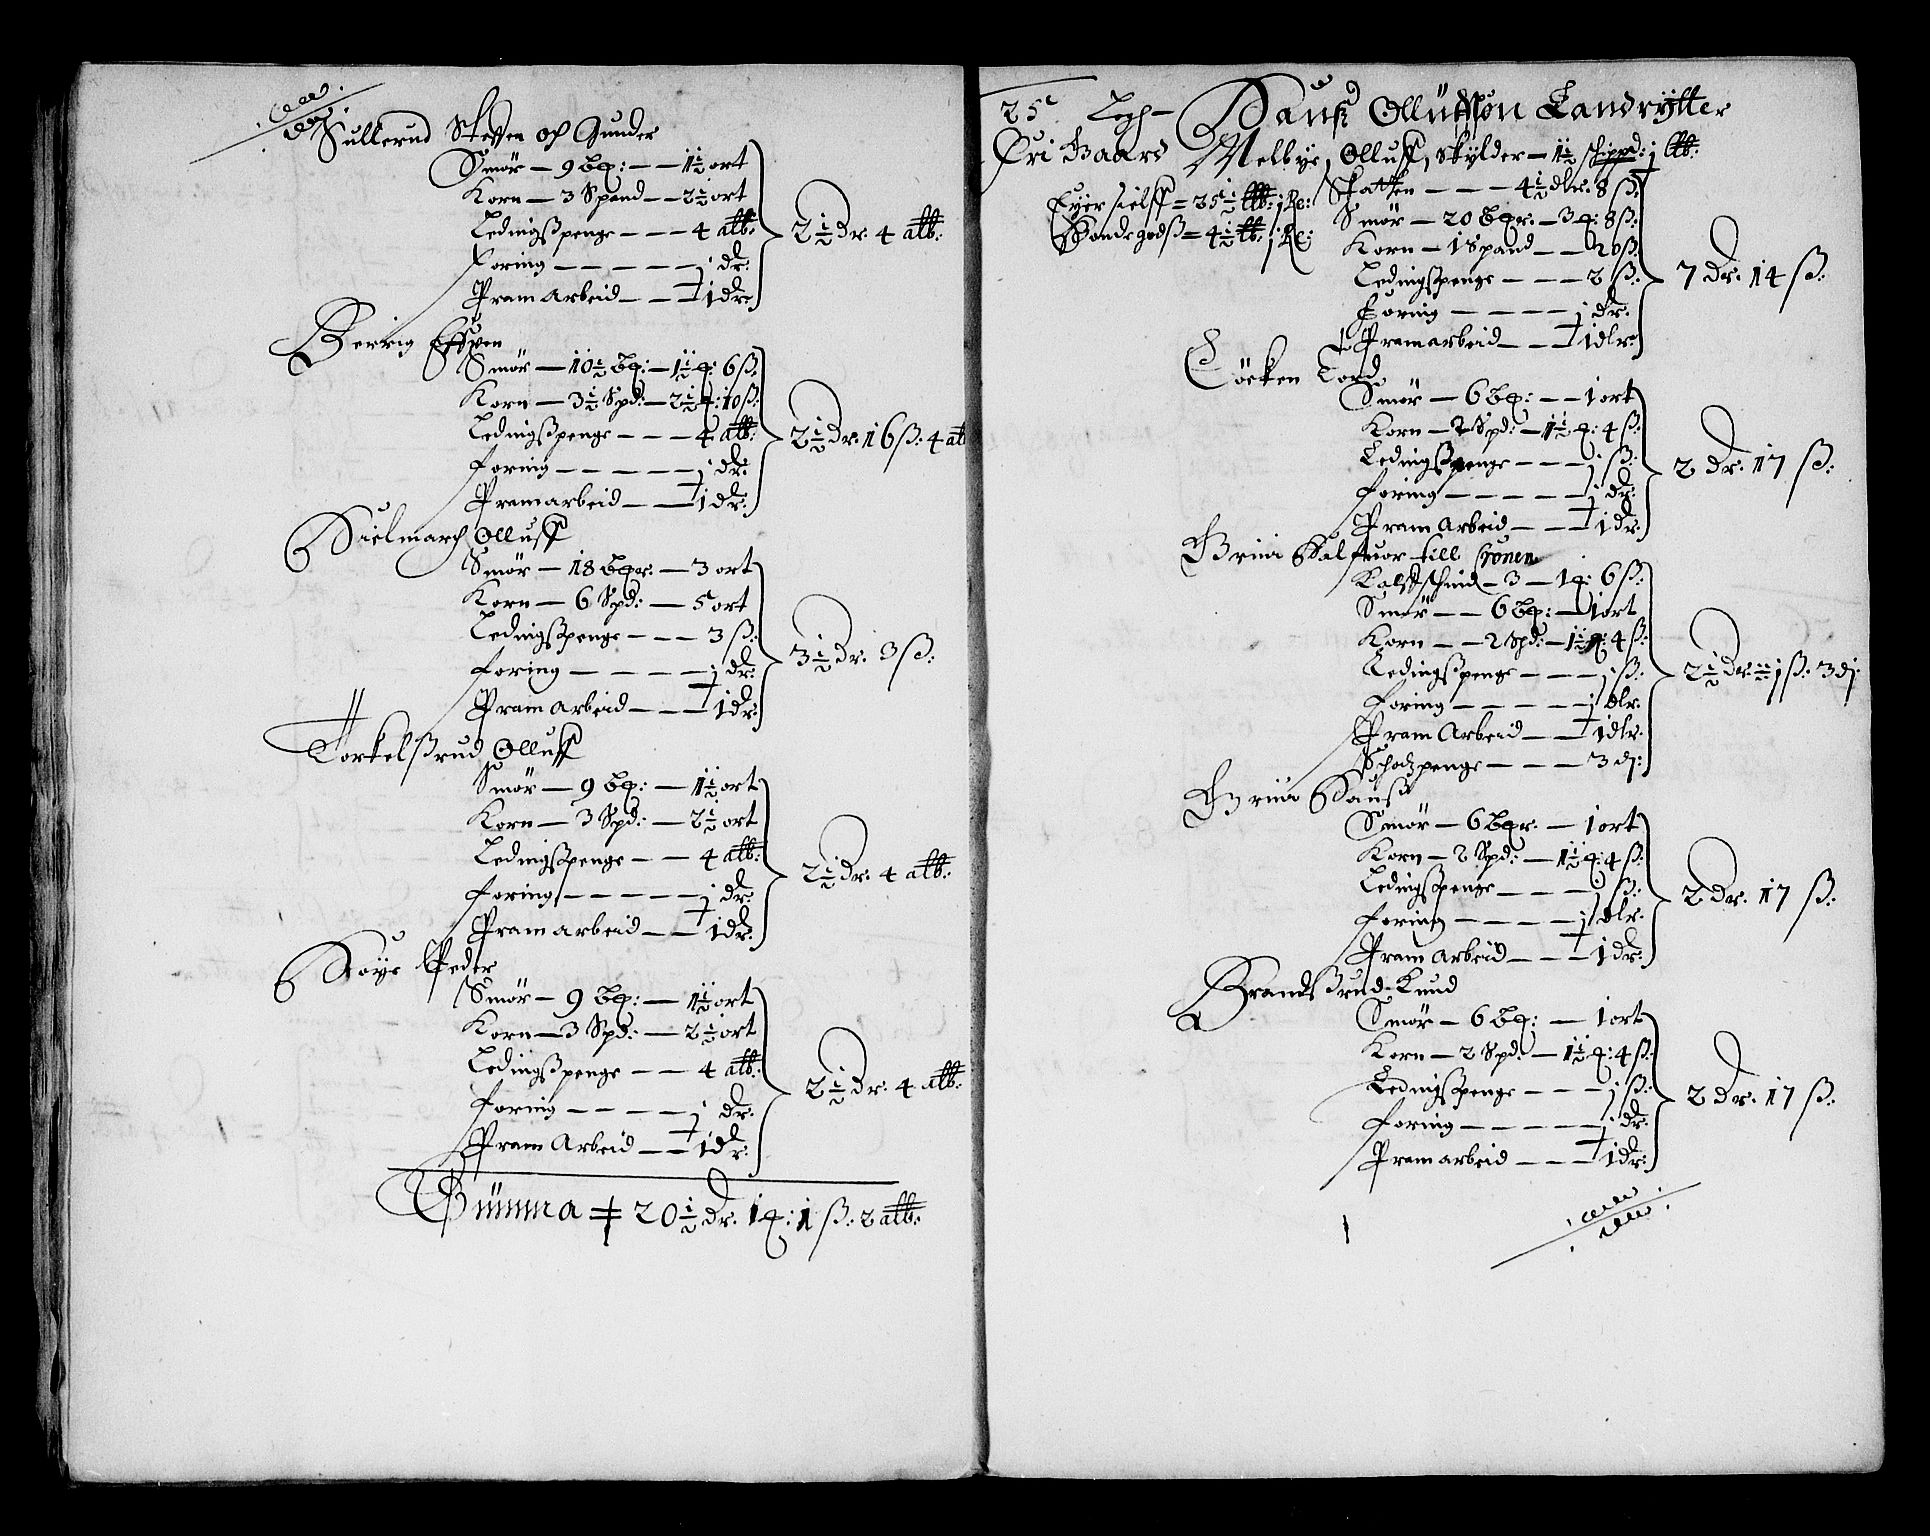 Sullerud Steffen och Gunder
Smör — 9 bp: — 1½ ort
Korn — 3 Spand — 2½ ort
Ledingspenge — 4 alb:
Foring — j dr:
Pram arbeid — 1 dr:
2½ dr. 4 alb:
Berrig Effwen
Smör — 10½ bp: — 1½ q: 6 ß:
Korn — 3½ Spd: — 2½ q: 10 ß:
Ledingspenge — 4 alb:
foring — j dr:
Pramarbeid — 1 dr:
2½ dr. 16 ß: 4 alb
Hielmarch Olluff
Smör — 18 bpr. — 3 ort
Korn — 6 Spd: — 5 ort
Ledingspenge — 3 ß:
foring — j dr:
Pram Arbeid — 1 dr:
3½ dr. 3 ß:
Torkelßrud Olluff
Smör — 9 bp: — 1½ ort
Korn — 3 Spd: — 2½ ort
Ledingßpenge — 4 alb:
foring — j dr:
Pram arbeid — 1 dr:
2½ dr. 4 alb:
Støye Peder
Smör — 9 bp: — 1½ ort
Korn — 3 Spd: — 2½ ort
Ledingßpenge — 4 alb:
foring — j dr:
Pram Arbeid — 1 dr:
2½ dr. 4 alb:
Summa 20½ dr. 1 q: 1 ß: 2 alb:
25 Legh — Hanß Ollüffßön Landrÿtter
Fri Gaard Melbye, Olluff, Skylder — 1½ schippd: j lb:
Eyer sielff = 25½ lb: j Re:
Bondegodß = 4½ lb: j Re:
Skatten — 4½ dlr. 8 ß:
Smör — 20 bpr. — 3 q: 8 ß:
Korn — 1 Spand — 20 ß:
Ledingßpenge — 2 ß:
Foring — j dr.
Pramarbeid — 1 dlr.
7 dr. 14 ß:
Löcken Tord
Smör — 6 bp: — 1 ort
Korn — 2 Spd: — 1½ q: 4 ß:
Ledingßpenge — j ß:
foring — j dr:
Pram Arbeid — 1 dr:
2 dr. 17 ß:
Grini Halfuor till Cronen
Kalffschind — 3 — 1 q: 6 ß:
Smör — 6 bp: — 1 ort
Korn — 2 Spd: — 1½ q: 4 ß:
Ledingßpenge — j ß:
foring — j dlr.
Pram Arbeid — 1 dlr.
Schotzpenge — 3 dj:
2½ dr. j ß: 3 dj:
Grini Hanß
Smör — 6 bpr. — 1 ort
Korn — 2 Spd: — 1½ q: 4 ß:
Ledingßpenge — j ß:
foring — j dlr.
Pram Arbeid — 1 dr:
2 dr. 17 ß:
Brandßrud Knud
Smör — 6 bp: — 1 ort
Korn — 2 Spd. — 1½ q: 4 ß:
Ledingßpenge — j ß:
foring — j dr:
Pramarbeid — 1 dr:
2 dr. 17 ß: